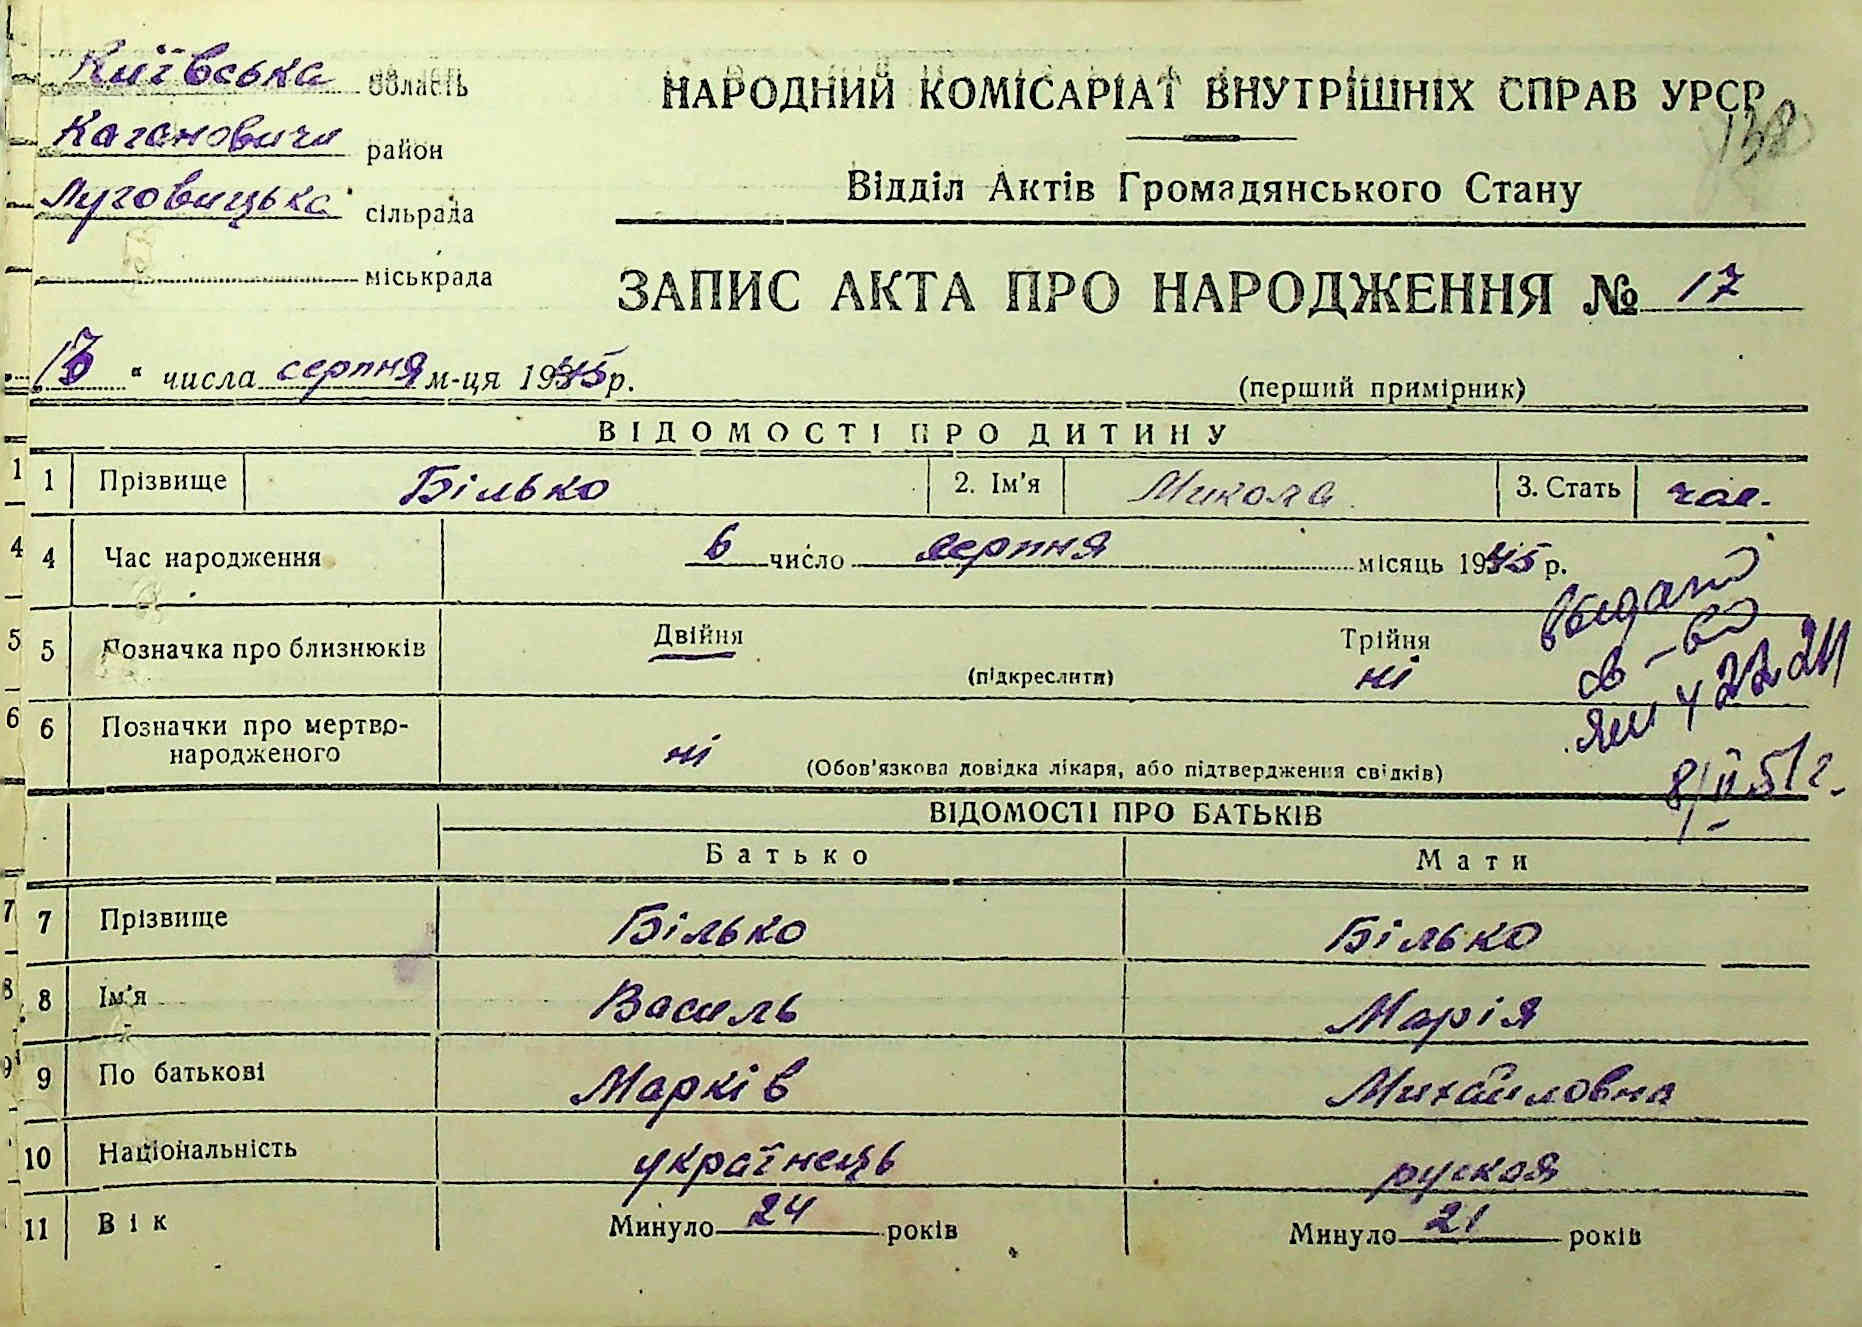 Київська область
НАРОДНИЙ КОМІСАРІАТ ВНУТРІШНІХ СПРАВ УРСР
Кагановичи район
138
Відділ Актів Громадянського Стану
Луговицька сільрада
міськрада
ЗАПИС АКТА ПРО НАРОДЖЕННЯ № 17
" числа серпня м-ця 1945 р.
(перший примірник)
ВІДОМОСТІ ПРО ДИТИНУ
1 Прізвище Білько 2. Ім'я Микола 3. Стать чол.
4 Час народження 6 число серпня місяць 1945 р.
5 Позначка про близнюків Двійня (підкреслити) Трійня ні
6 Позначки про мертвонародженого ні (Обов'язкова довідка лікаря, або підтвердження свідків)
Выдано
св-во
22 24
8/II 51 г.
ВІДОМОСТІ ПРО БАТЬКІВ
Батько Мати
7 Прізвище Білько Білько
8 Ім'я Василь Марія
9 По батькові Марків Михайловна
10 Національність українець руская
11 Вік Минуло 24 років Минуло 21 років